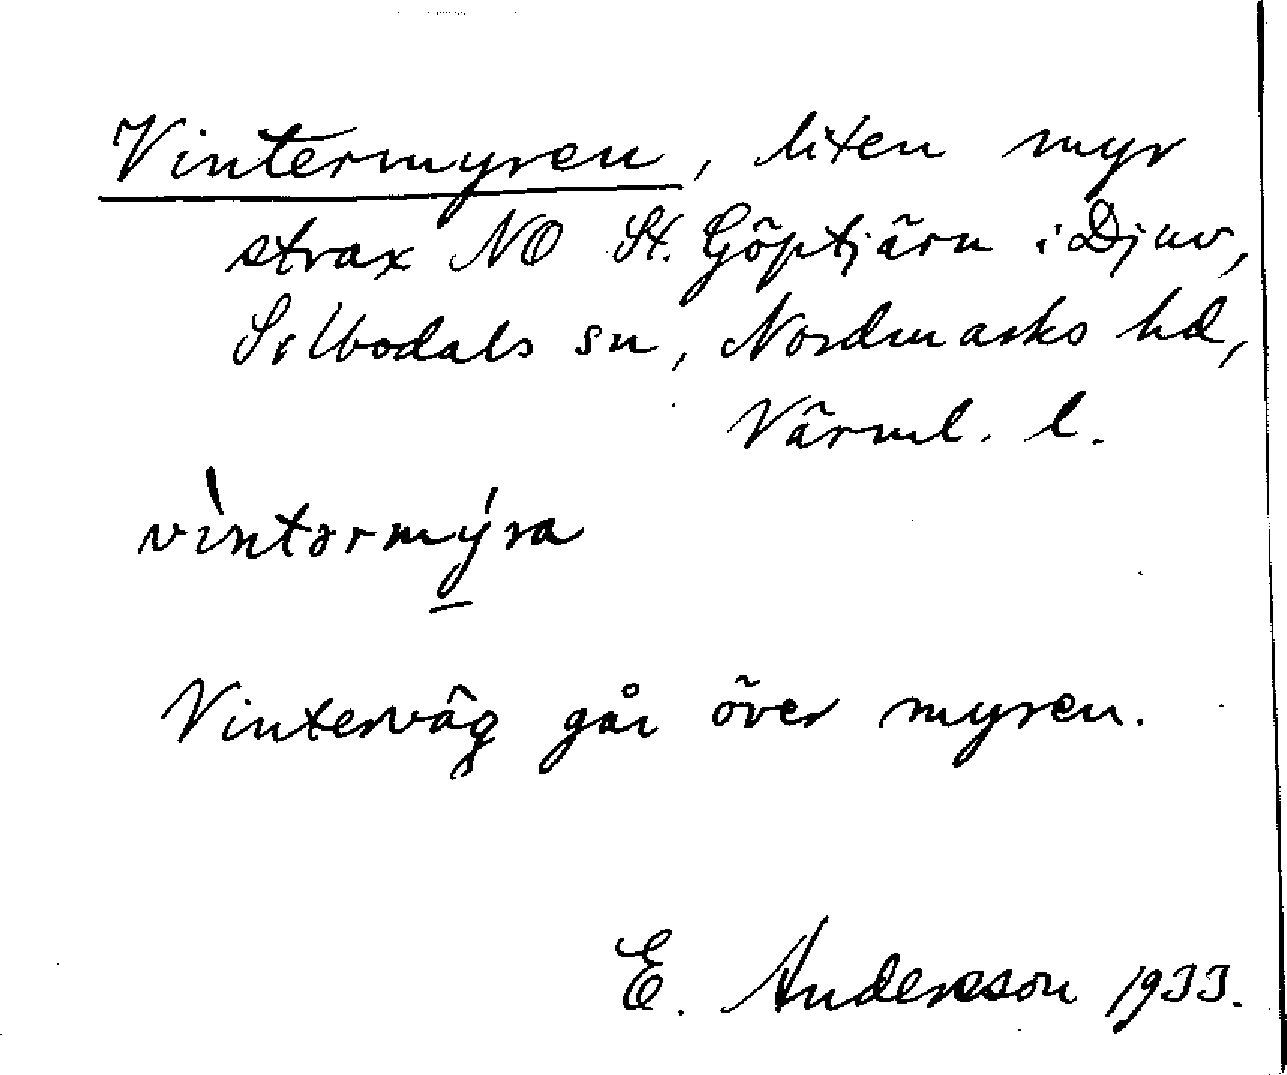 Vintermyren, liten myr
strax NO St. Göptjärn i Djuv,
Sillbodals sn, Nordmarks hd,
Värml. l.
vìntərmýra
Vinterväg går över myren.
E. Andersson 1933.